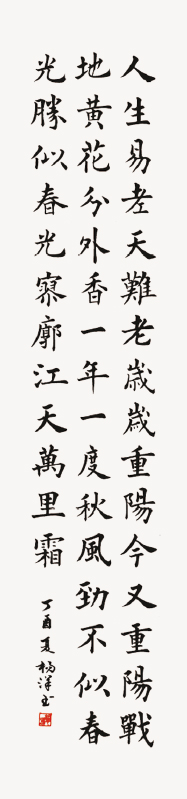 人生易老天難老歲歲重陽今又重陽戰
地黃花分外香一年一度秋風勁不似春
光勝似春光寥廓江天萬里霜
丁酉夏楊洋书